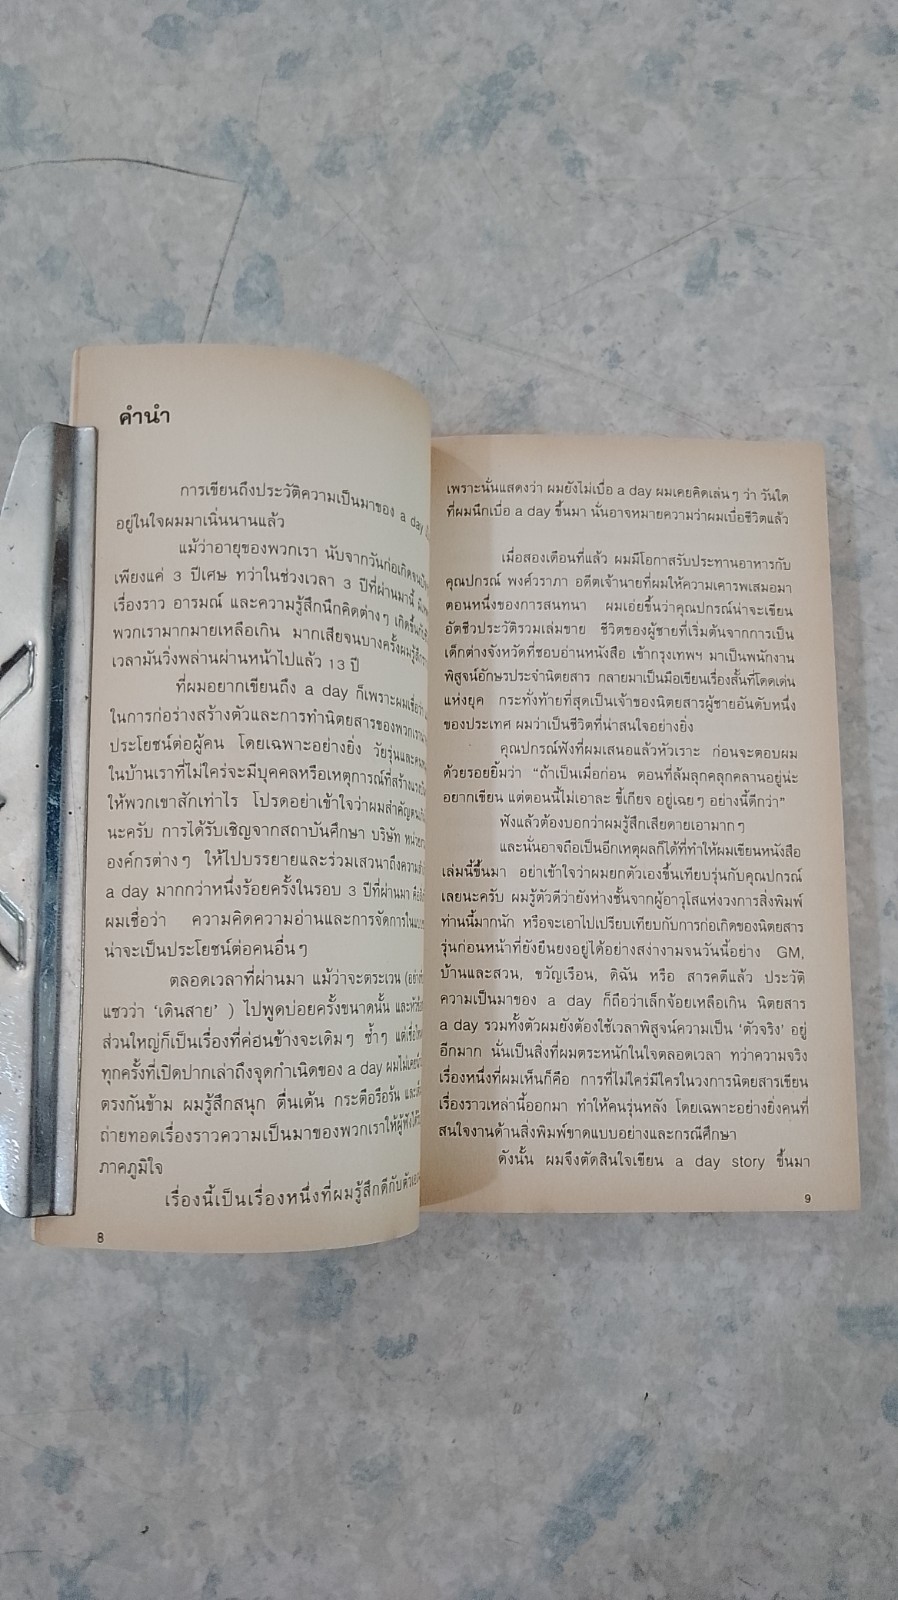 คำนำ
การเขียนถึงประวัติความเป็นมาของ a day
อยู่ในใจผมมาเนิ่นนานแล้ว
แม้ว่าอายุของพวกเรา นับจากวันก่อเกิดจนถึง
เพียงแค่ 3 ปีเศษ ทว่าในช่วงเวลา 3 ปีที่ผ่านมานี้
เรื่องราว อารมณ์ และความรู้สึกนึกคิดต่างๆ เกิดขึ้นกับ
พวกเรามากมายเหลือเกิน มากเสียจนบางครั้งผมรู้สึก
เวลามันวิ่งพล่านผ่านหน้าไปแล้ว 13 ปี
ที่ผมอยากเขียนถึง a day ก็เพราะผมเชื่อว่า
ในการก่อร่างสร้างตัวและการทำนิตยสารของพวกเรา
ประโยชน์ต่อผู้คน โดยเฉพาะอย่างยิ่ง วัยรุ่นและ
ในบ้านเราที่ไม่ใคร่จะมีบุคคลหรือเหตุการณ์ที่สร้าง
ให้พวกเขาสักเท่าไร โปรดอย่าเข้าใจว่าผมสำคัญ
นะครับ การได้รับเชิญจากสถาบันศึกษา บริษัท
องค์กรต่างๆ ให้ไปบรรยายและร่วมเสวนาถึงความ
a day มากกว่าหนึ่งร้อยครั้งในรอบ 3 ปีที่ผ่านมา
ผมเชื่อว่า ความคิดความอ่านและการจัดการใน
น่าจะเป็นประโยชน์ต่อคนอื่นๆ
ตลอดเวลาที่ผ่านมา แม้ว่าจะตระเวน
แซวว่า ‘เดินสาย’ ) ไปพูดบ่อยครั้งขนาดนั้น
ส่วนใหญ่ก็เป็นเรื่องที่ค่อนข้างจะเดิมๆ ซ้ำๆ
ทุกครั้งที่เปิดปากเล่าถึงจุดกำเนิดของ a day
ตรงกันข้าม ผมรู้สึกสนุก ตื่นเต้น กระตือรือร้น
ถ่ายทอดเรื่องราวความเป็นมาของพวกเราให้ผู้ฟัง
ภาคภูมิใจ
เรื่องนี้เป็นเรื่องหนึ่งที่ผมรู้สึกดีกับ
8
เพราะนั่นแสดงว่า ผมยังไม่เบื่อ a day ผมเคยคิดเล่นๆ ว่า วันใด
ที่ผมนึกเบื่อ a day ขึ้นมา นั่นอาจหมายความว่าผมเบื่อชีวิตแล้ว
เมื่อสองเดือนที่แล้ว ผมมีโอกาสรับประทานอาหารกับ
คุณปกรณ์ พงศ์วราภา อดีตเจ้านายที่ผมให้ความเคารพเสมอมา
ตอนหนึ่งของการสนทนา ผมเอ่ยขึ้นว่าคุณปกรณ์น่าจะเขียน
อัตชีวประวัติรวมเล่มขาย ชีวิตของผู้ชายที่เริ่มต้นจากการเป็น
เด็กต่างจังหวัดที่ชอบอ่านหนังสือ เข้ากรุงเทพฯ มาเป็นพนักงาน
พิสูจน์อักษรประจำนิตยสาร กลายมาเป็นมือเขียนเรื่องสั้นที่โดดเด่น
แห่งยุค กระทั่งท้ายที่สุดเป็นเจ้าของนิตยสารผู้ชายอันดับหนึ่ง
ของประเทศ ผมว่าเป็นชีวิตที่น่าสนใจอย่างยิ่ง
คุณปกรณ์ฟังที่ผมเสนอแล้วหัวเราะ ก่อนจะตอบผม
ด้วยรอยยิ้มว่า “ถ้าเป็นเมื่อก่อน ตอนที่ล้มลุกคลุกคลานอยู่น่ะ
อยากเขียน แต่ตอนนี้ไม่เอาละ ขี้เกียจ อยู่เฉยๆ อย่างนี้ดีกว่า”
ฟังแล้วต้องบอกว่าผมรู้สึกเสียดายเอามากๆ
และนั่นอาจถือเป็นอีกเหตุผลก็ได้ที่ทำให้ผมเขียนหนังสือ
เล่มนี้ขึ้นมา อย่าเข้าใจว่าผมยกตัวเองขึ้นเทียบรุ่นกับคุณปกรณ์
เลยนะครับ ผมรู้ตัวดีว่ายังห่างชั้นจากผู้อาวุโสแห่งวงการสิ่งพิมพ์
ท่านนี้มากนัก หรือจะเอาไปเปรียบเทียบกับการก่อเกิดของนิตยสาร
รุ่นก่อนหน้าที่ยังยืนยงอยู่ได้อย่างสง่างามจนวันนี้อย่าง GM,
บ้านและสวน, ขวัญเรือน, ดิฉัน หรือ สารคดีแล้ว ประวัติ
ความเป็นมาของ a day ก็ถือว่าเล็กจ้อยเหลือเกิน นิตยสาร
a day รวมทั้งตัวผมยังต้องใช้เวลาพิสูจน์ความเป็น ‘ตัวจริง’ อยู่
อีกมาก นั่นเป็นสิ่งที่ผมตระหนักในใจตลอดเวลา ทว่าความจริง
เรื่องหนึ่งที่ผมเห็นก็คือ การที่ไม่ใคร่มีใครในวงการนิตยสารเขียน
เรื่องราวเหล่านี้ออกมา ทำให้คนรุ่นหลัง โดยเฉพาะอย่างยิ่งคนที่
สนใจงานด้านสิ่งพิมพ์ขาดแบบอย่างและกรณีศึกษา
ดังนั้น ผมจึงตัดสินใจเขียน a day story ขึ้นมา
9